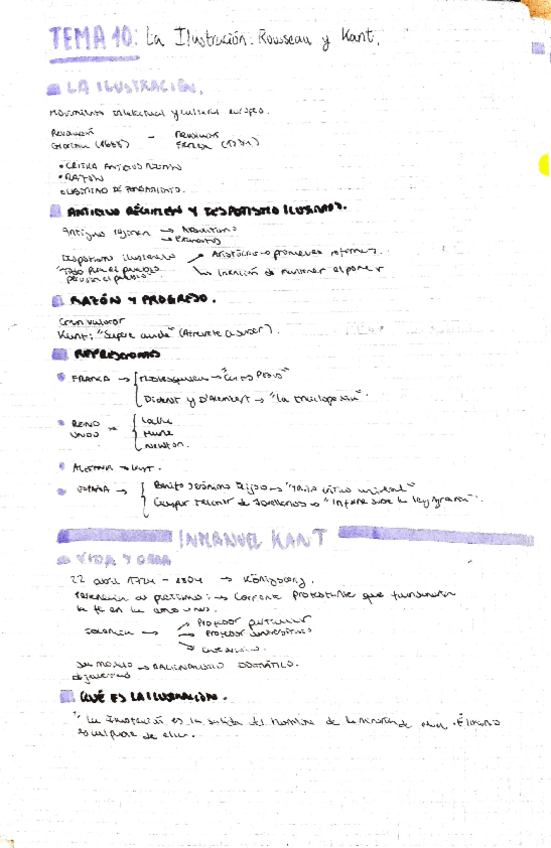 TEMA 10: La Ilustración: Rousseau y Kant.
LA ILUSTRACIÓN.
Movimiento intelectual y cultural europeo.
Revolución - Revolución
Gloriosa (1688) Francesa
• CRÍTICA ANTIGUO RÉGIMEN
• RAZÓN
ANTIGUO RÉGIMEN Y DESPOTISMO ILUSTRADO.
Antiguo régimen → Absolutismo
Despotismo ilustrado → Aristócratas promueven reformas.
"Todo para el pueblo → Intención de mantener el poder
pero sin el pueblo"
RAZÓN Y PROGRESO.
Gran valor
Kant: "Sapere aude" (Atrévete a saber).
FRANCIA → Montesquieu → "Cartas Persas"
Diderot y D'Alembert → "La Enciclopedia".
REINO → Locke
UNIDO Hume
Newton.
ALEMANIA → Kant.
ESPAÑA → Benito Jerónimo Feijoo → "Teatro crítico universal"
Gaspar Melchor de Jovellanos → "Informe sobre la ley agraria".
INMANUEL KANT
VIDA Y OBRA
22 abril 1724 - 1804 → Königsberg.
al pietismo: → Corriente protestante que
la fe en
→ Profesor particular
→ Profesor universitario
→ RACIONALISMO DOGMÁTICO.
QUÉ ES LA ILUSTRACIÓN.
"La Ilustración es la salida del hombre de la minoría de edad. Él mismo
es culpable de ella.